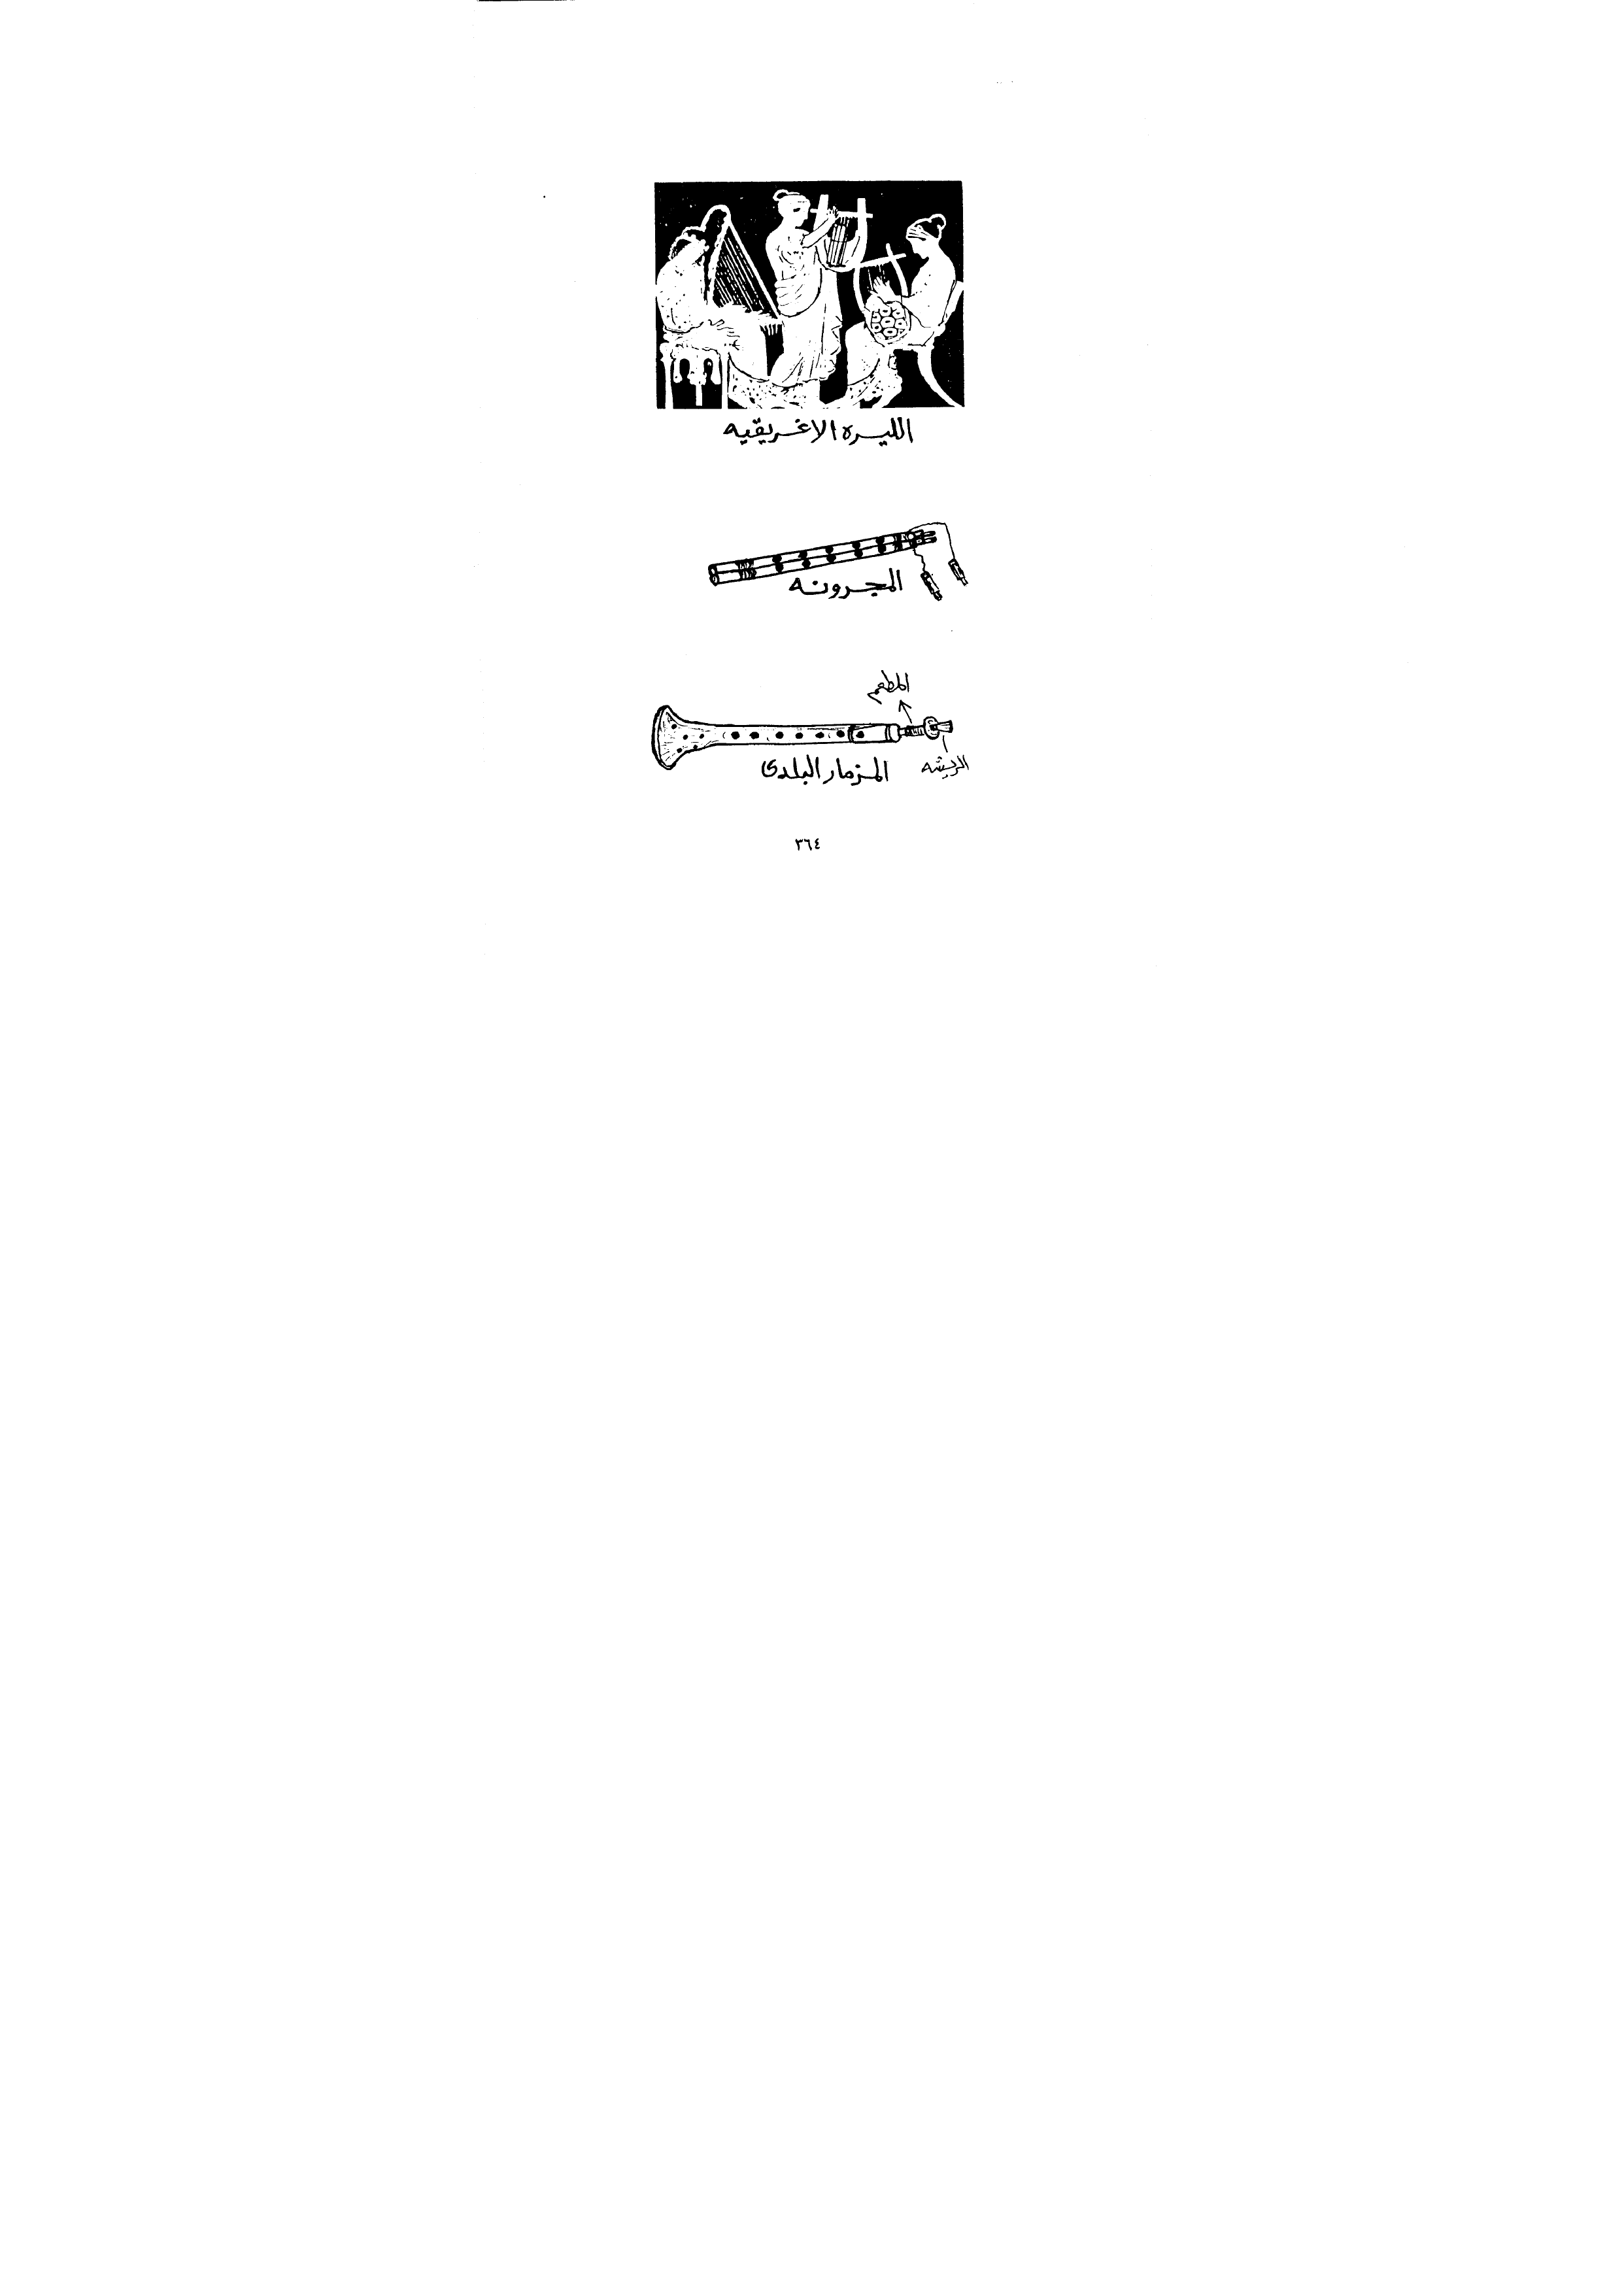 الليره الاغريقيه
المجرونه
المطعم
الريشه
المزمار البلدى
٣٦٤